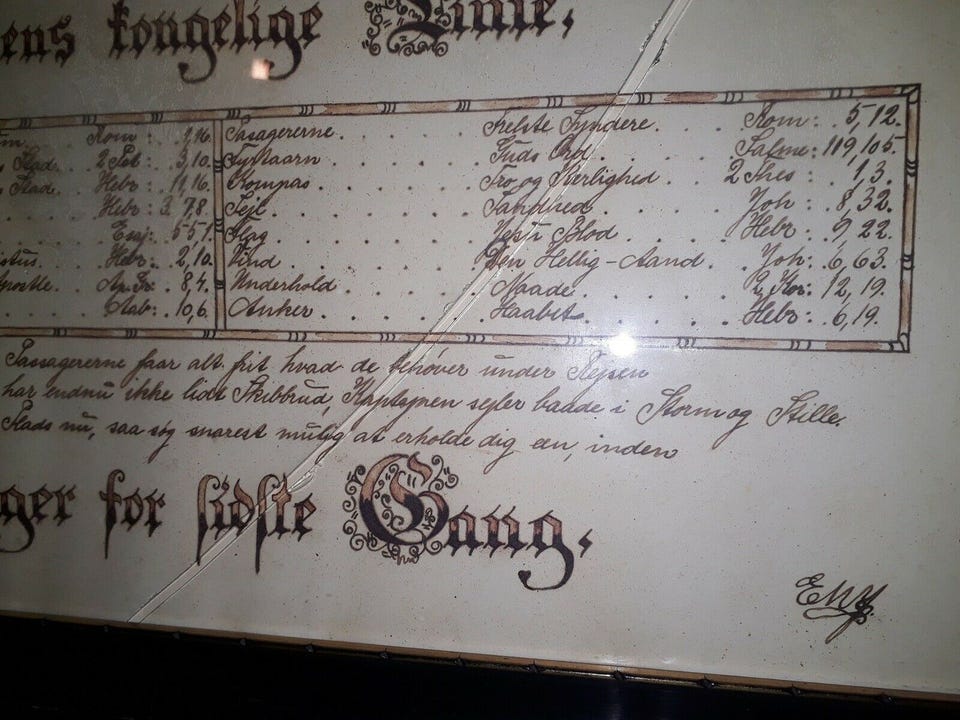 ens kongelige Linie,
Rom: 1,16. Passagererne. Frelste Syndere. Rom: 5,12.
Stad. 2 Pet: 3,10. Fyrtaarn Guds Ord. Salme: 119,105
Stade. Hebr: 11,16. Kompas. Tro og Kærlighed. 2 Thes: 1,3.
Hebr: 3. 7,8 Sejl. Sandhed. Joh: 8,32.
Esaj: 55,1. Flag. Jesu Blod. Hebr: 9,22.
Hebr: 2,10. Vind Den Hellig-Aand. Joh: 6,63.
Ap. Gr: 8,4. Underhold. Naade. 2 Kor: 12,19.
Aab: 10,6. Anker. Haabet. Hebr: 6,19.
Passagererne faar alt frit hvad de behöver under Rejsen
har endnu ikke lidt Skibbrud, Kaptajnen sejler baade i Storm og Stille.
Plads nu, saa søg snarest mulig at erholde dig en, inden
ger for sidste Gang,